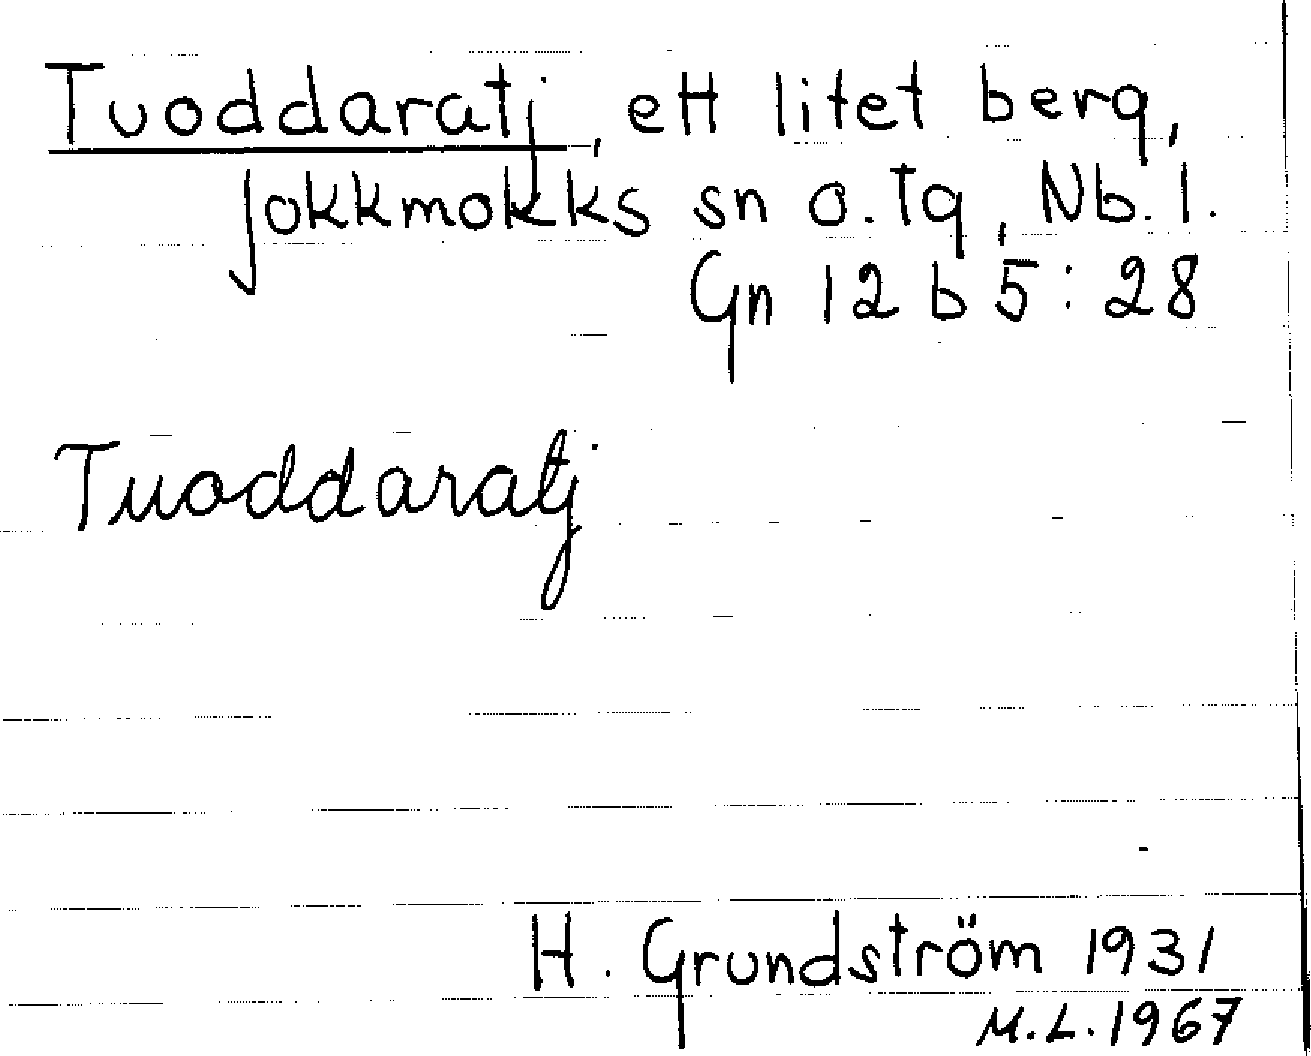 Tuoddaratj, ett litet berg,
Jokkmokks sn o. tg, Nb. l.
Gn 12 b 5 : 28
Tuoddaratj
H. Grundström 1931
M.L. 1967